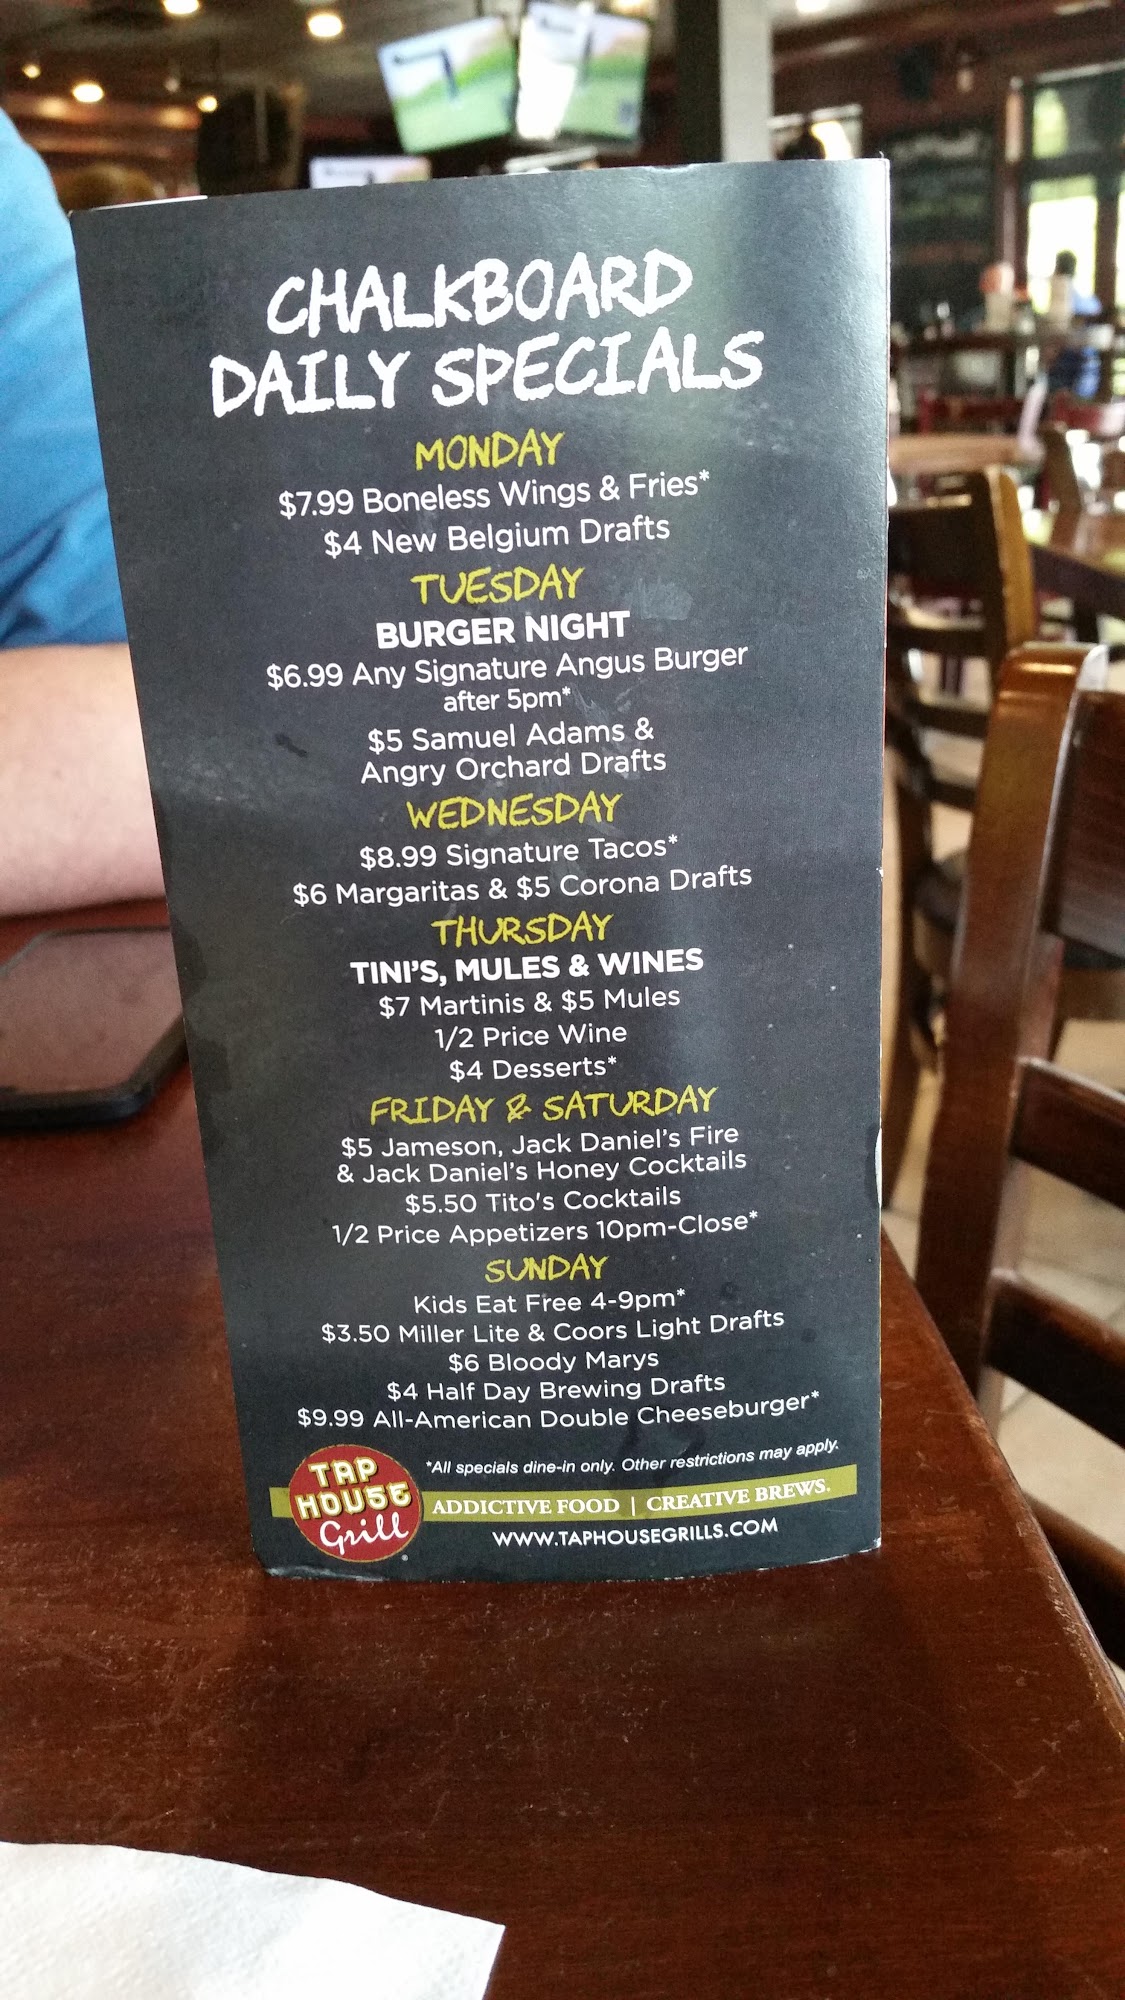 CHALKBOARD
DAILY SPECIALS
MONDAY
$7.99 Boneless Wings & Fries*
$4 New Belgium Drafts
TUESDAY
BURGER NIGHT
$6.99 Any Signature Angus Burger
after 5pm*
$5 Samuel Adams &
Angry Orchard Drafts
WEDNESDAY
$8.99 Signature Tacos*
$6 Margaritas & $5 Corona Drafts
THURSDAY
TINI'S, MULES & WINES
$7 Martinis & $5 Mules
1/2 Price Wine
$4 Desserts*
FRIDAY & SATURDAY
$5 Jameson, Jack Daniel's Fire
& Jack Daniel's Honey Cocktails
$5.50 Tito's Cocktails
1/2 Price Appetizers 10pm-Close*
SUNDAY
Kids Eat Free 4-9pm*
$3.50 Miller Lite & Coors Light Drafts
$6 Bloody Marys
$4 Half Day Brewing Drafts
$9.99 All-American Double Cheeseburger*
*All specials dine-in only. Other restrictions may apply.
TAP
HOUSE
Grill
ADDICTIVE FOOD | CREATIVE BREWS.
WWW.TAPHOUSEGRILLS.COM